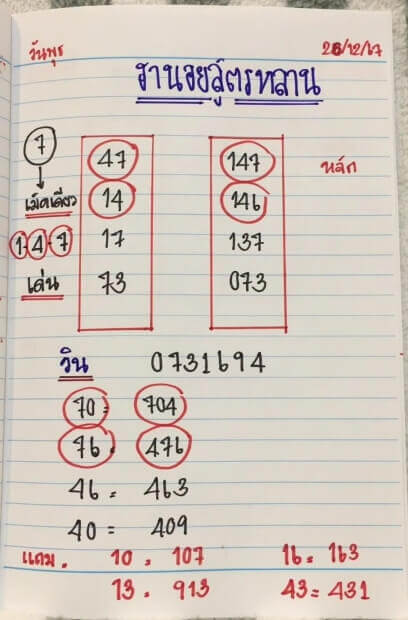 วันพุธ 26/12/67
ฮานอยสูตรหลาน
7 47 147 หลัก
เม็ดเดียว 14 146
1-4-7 17 137
เด่น 73 073
วิน 0731694
70 = 704
76 . 476
46 = 463
40 = 409
แถม . 10 . 107 16 = 163
13 . 913 43 = 431